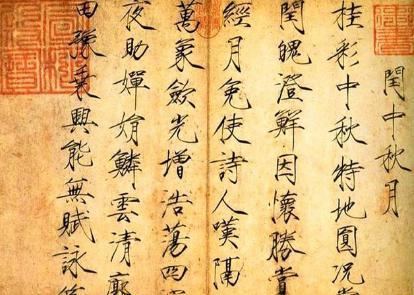 閏中秋月
桂彩中秋特地圓況
閏魄澄鮮因懷勝賞
經月免使詩人嘆隔
萬象斂光增浩蕩四
夜助嬋娟鱗雲清廓
田豫乘興能無賦詠